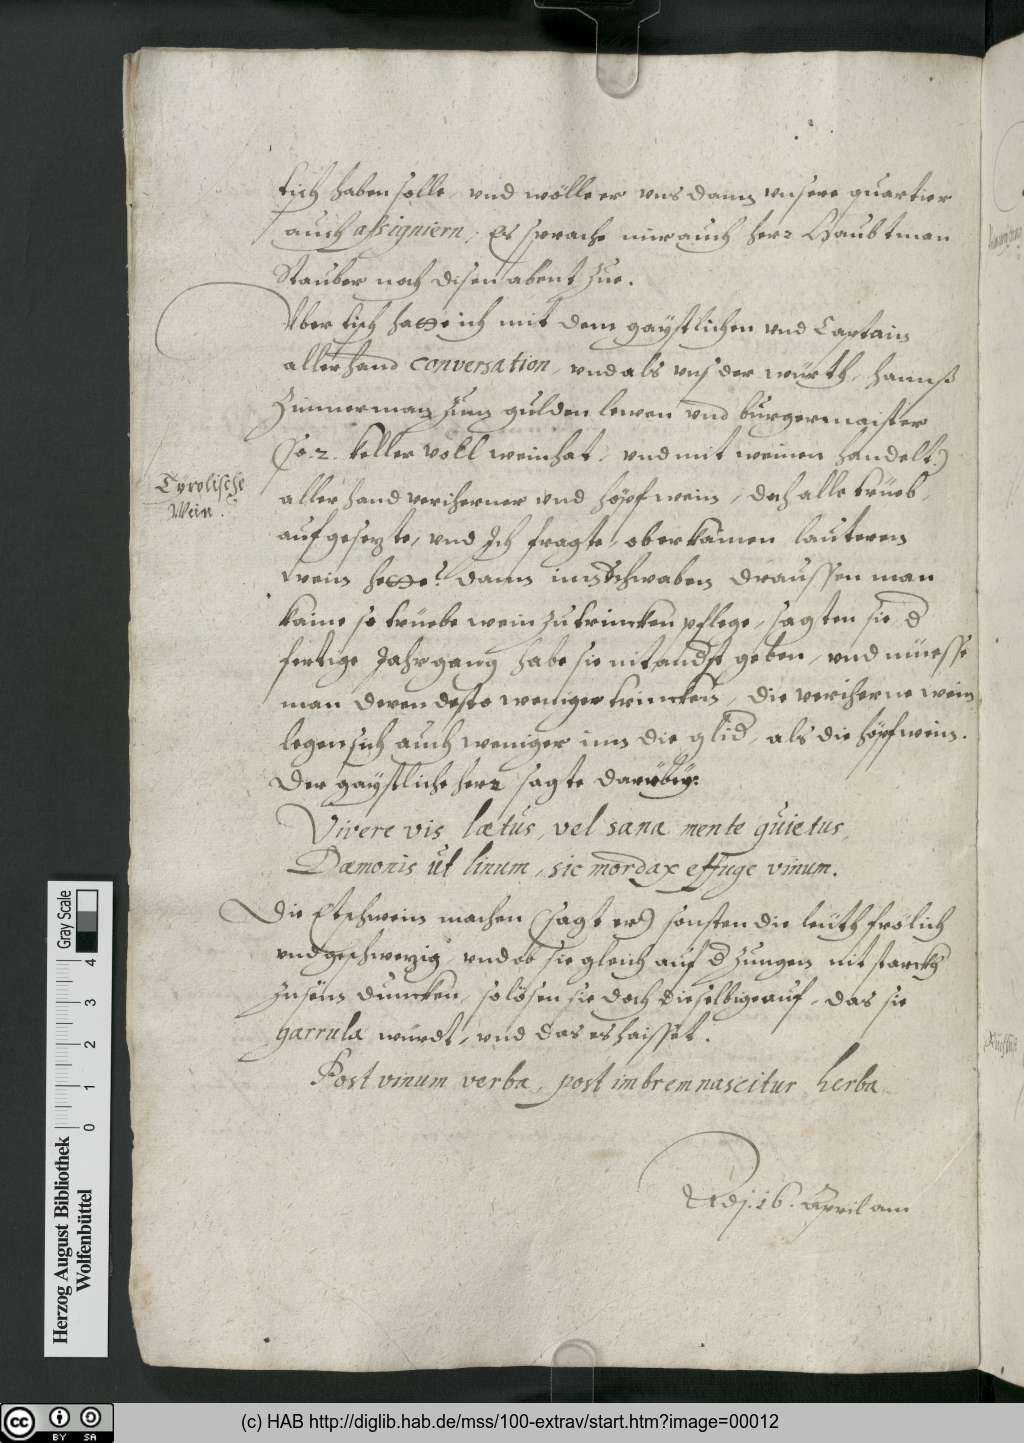 tisch haben solle, und wölle er uns dann unsere quartier
auch assigniern, Es sprache mir auch herr Haubtman
Stauber noch disen abent zue.
Uber tisch hatte ich mit dem gaystlichen und Captain
allerhand conversation, und als uns der würth, hannß
Zimmerman zum gulden lewen und burgermaister
(so 2. keller voll wein hat, und mit weinen handelt)
Tyrolische
Wein.
allerhand veriherner und höpfwein, doch alle trüeb,
aufgesezte, und Ich fragte, ob er kainen lautern
wein hette? dann inn Schwaben draussen man
kaine so trüebe wein zu trincken pflege, sagten sie, d
fertige Jahrgang habe sie nit anderst geben, und müesse
man deren desto weniger trincken, die veriherne wein
legen sich auch weniger inn die glid, als die höpfwein.
Der gaystliche herr sagte darübeÿ:
Vivere vis lætus, vel sana mente quietus,
Dæmonis ut linum, sic mordax effuge vinum.
Die Etschwein machen (sagt er) sonsten die leüth frölich
und geschwezig, und ob sie gleich auf d Zungen nit starckh
zu sein duncken, so lösen sie doch dieselbige auf, das sie
garrula würdt, und das es haisset.
Post vinum verba, post imbrem nascitur herba
Adj. 16. April am
Herzog August Bibliothek
Wolfenbüttel
Gray Scale
0 1 2 3 4
cc BY SA
(c) HAB http://diglib.hab.de/mss/100-extrav/start.htm?image=00012